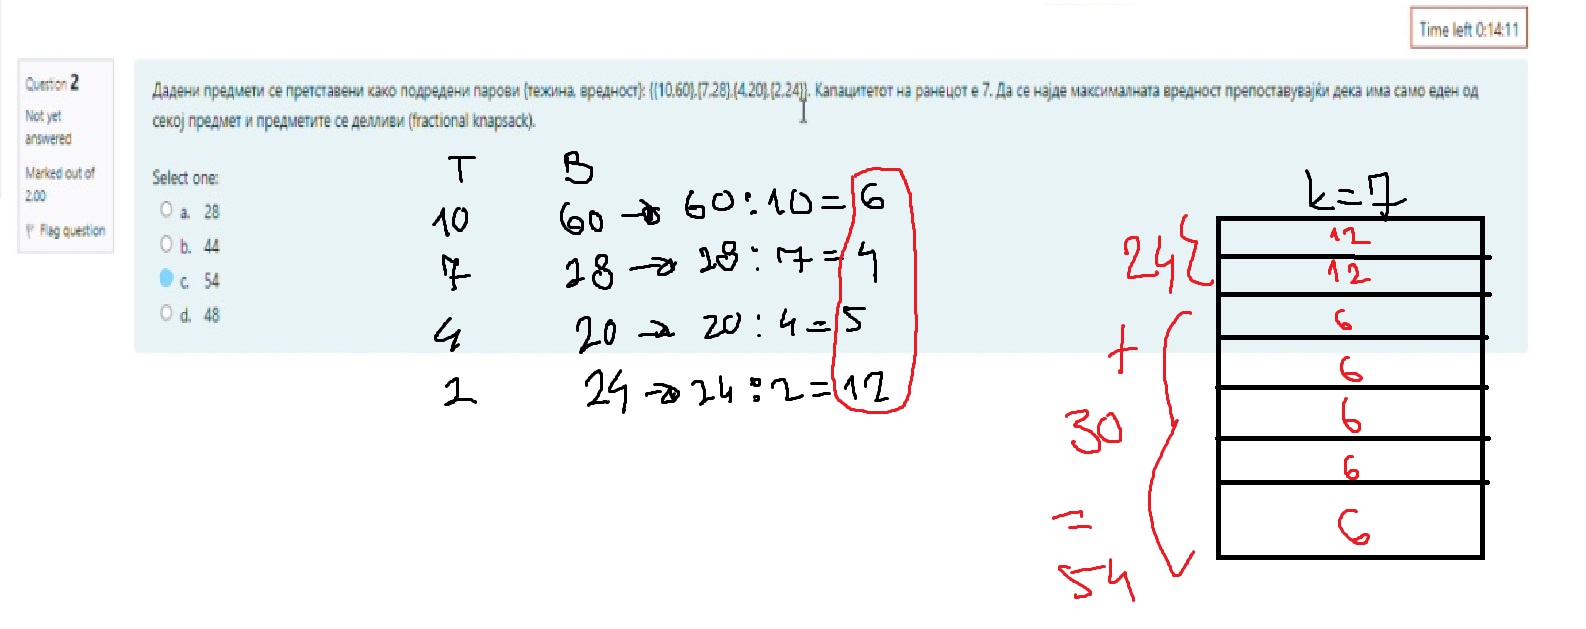 Time left 0:14:11
Question 2
Not yet
answered
Marked out of
2.00
Flag question
Дадени предмети се претставени како подредени парови {тежина, вредност}: {{10,60},{7,28},{4,20},{2,24}}. Капацитетот на ранецот е 7. Да се најде максималната вредност препоставувајќи дека има само еден од
секој предмет и предметите се делливи (fractional knapsack).
Select one:
a. 28
b. 44
c. 54
d. 48
T B
10 60 → 60:10=6
7 28 → 28:7=4
4 20 → 20:4=5
2 24 → 24:2=12
k=7
24{
12
12
6
6
6
6
6
+
30
=
54